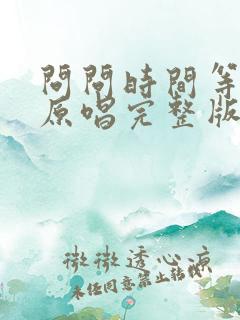 問問時間等
原唱完整版
微微透心凉
未经同意禁止转载